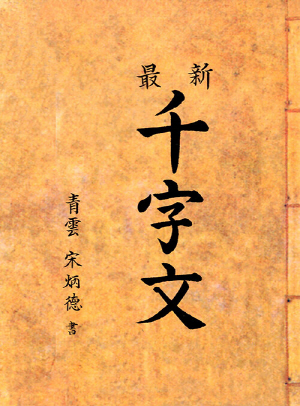 最新
千字文
青雲 宋炳德 書